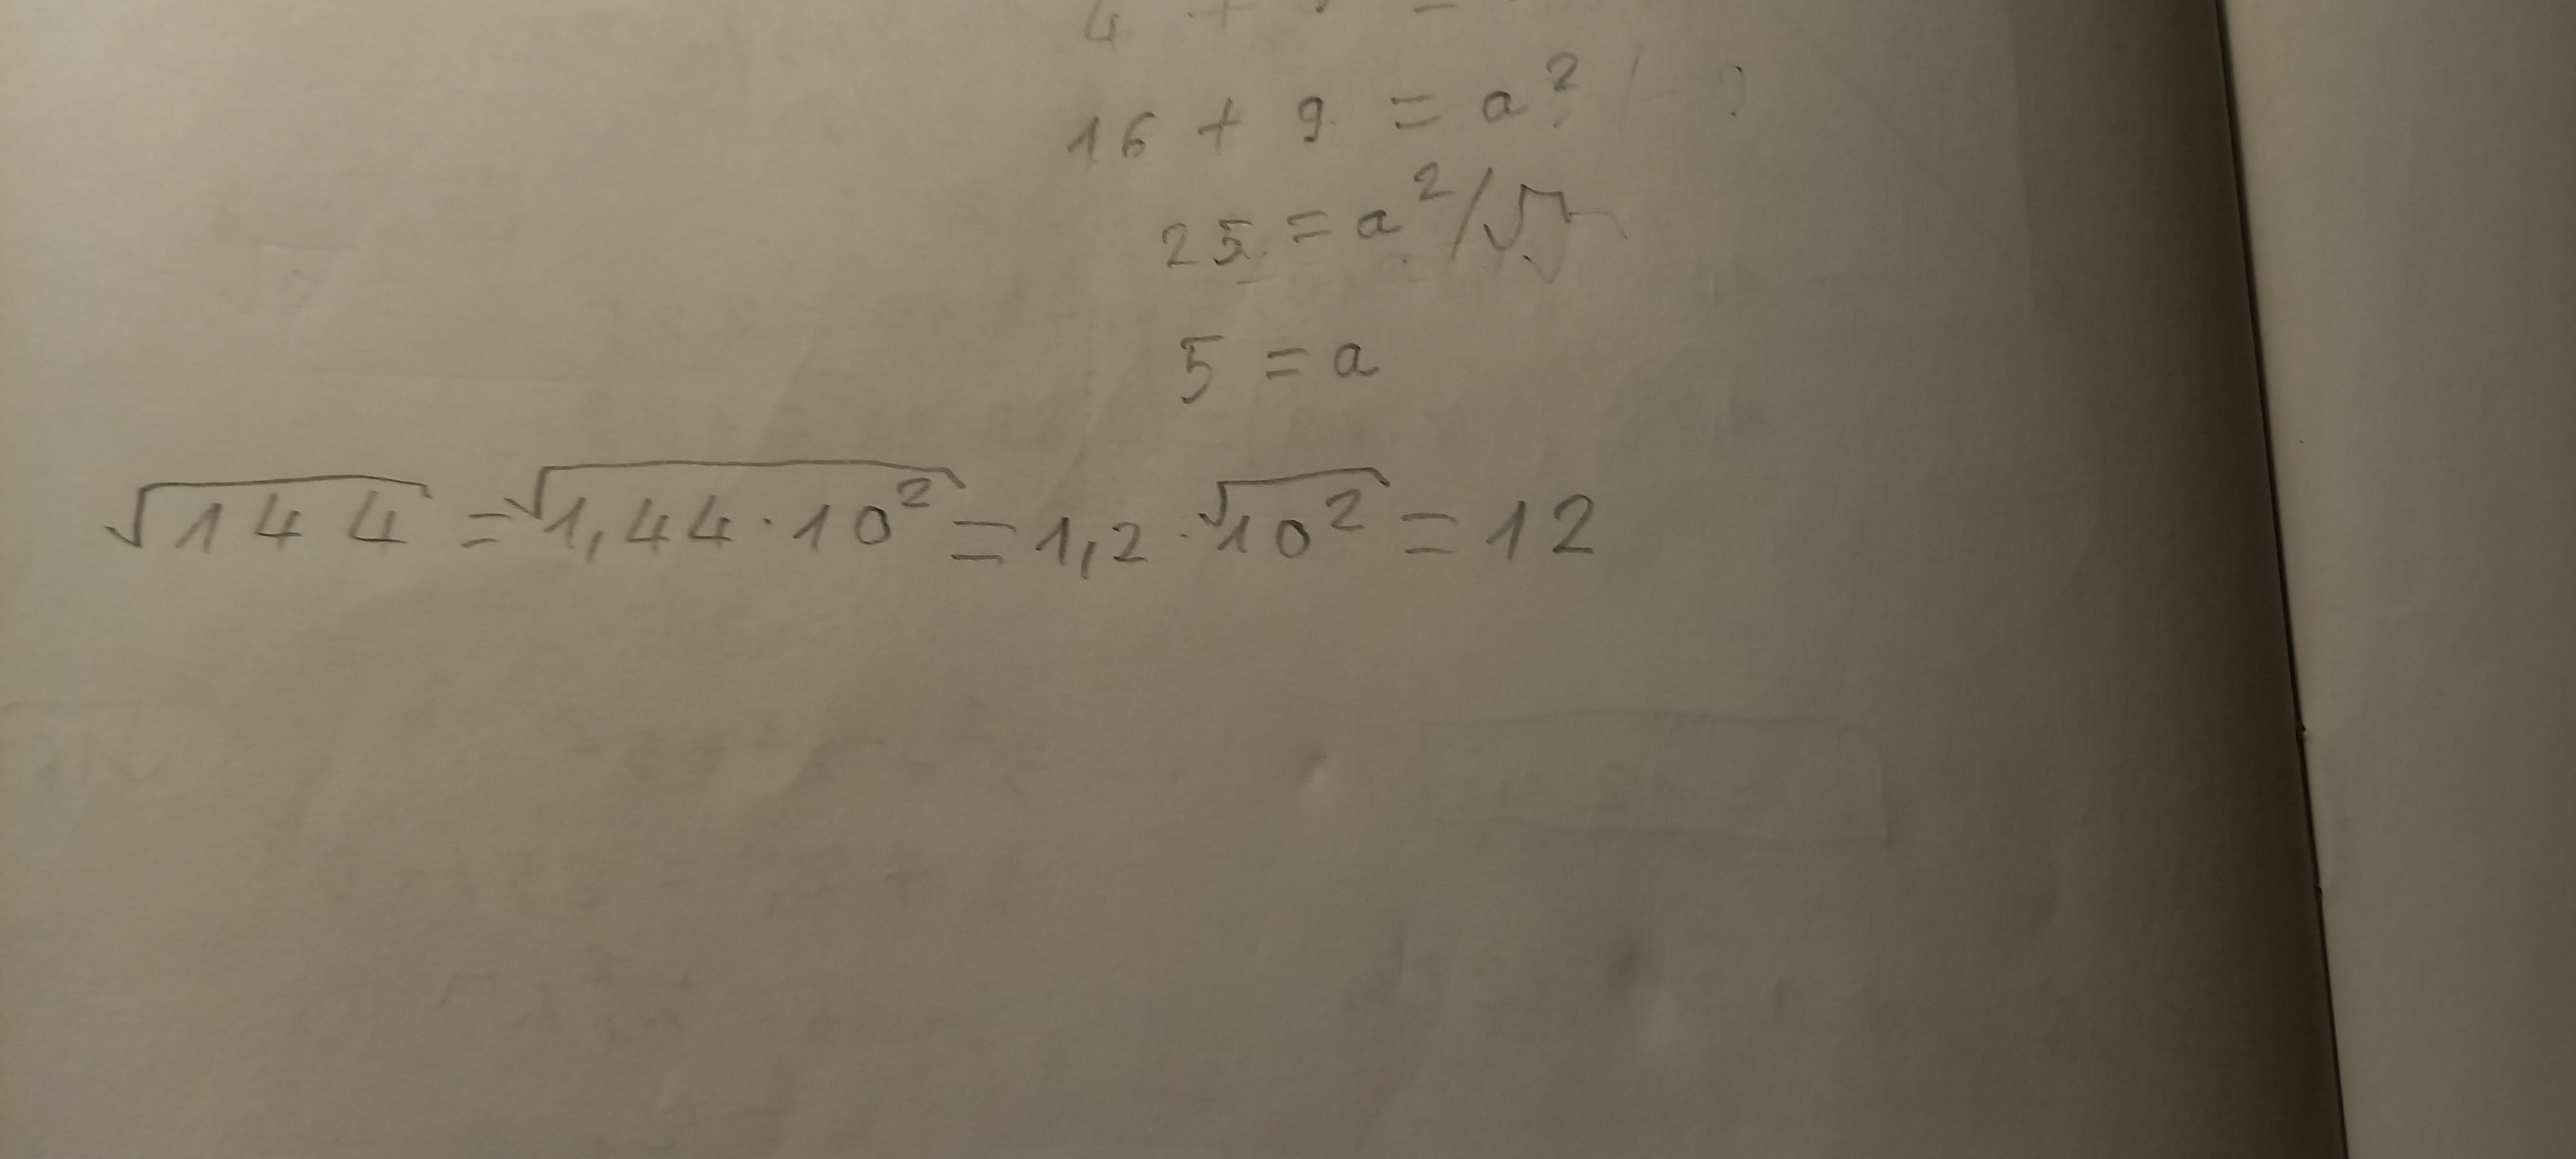 16 + 9 = a²
25 = a² /√
5 = a
√144 = √1,44·10² = 1,2·√10² = 12